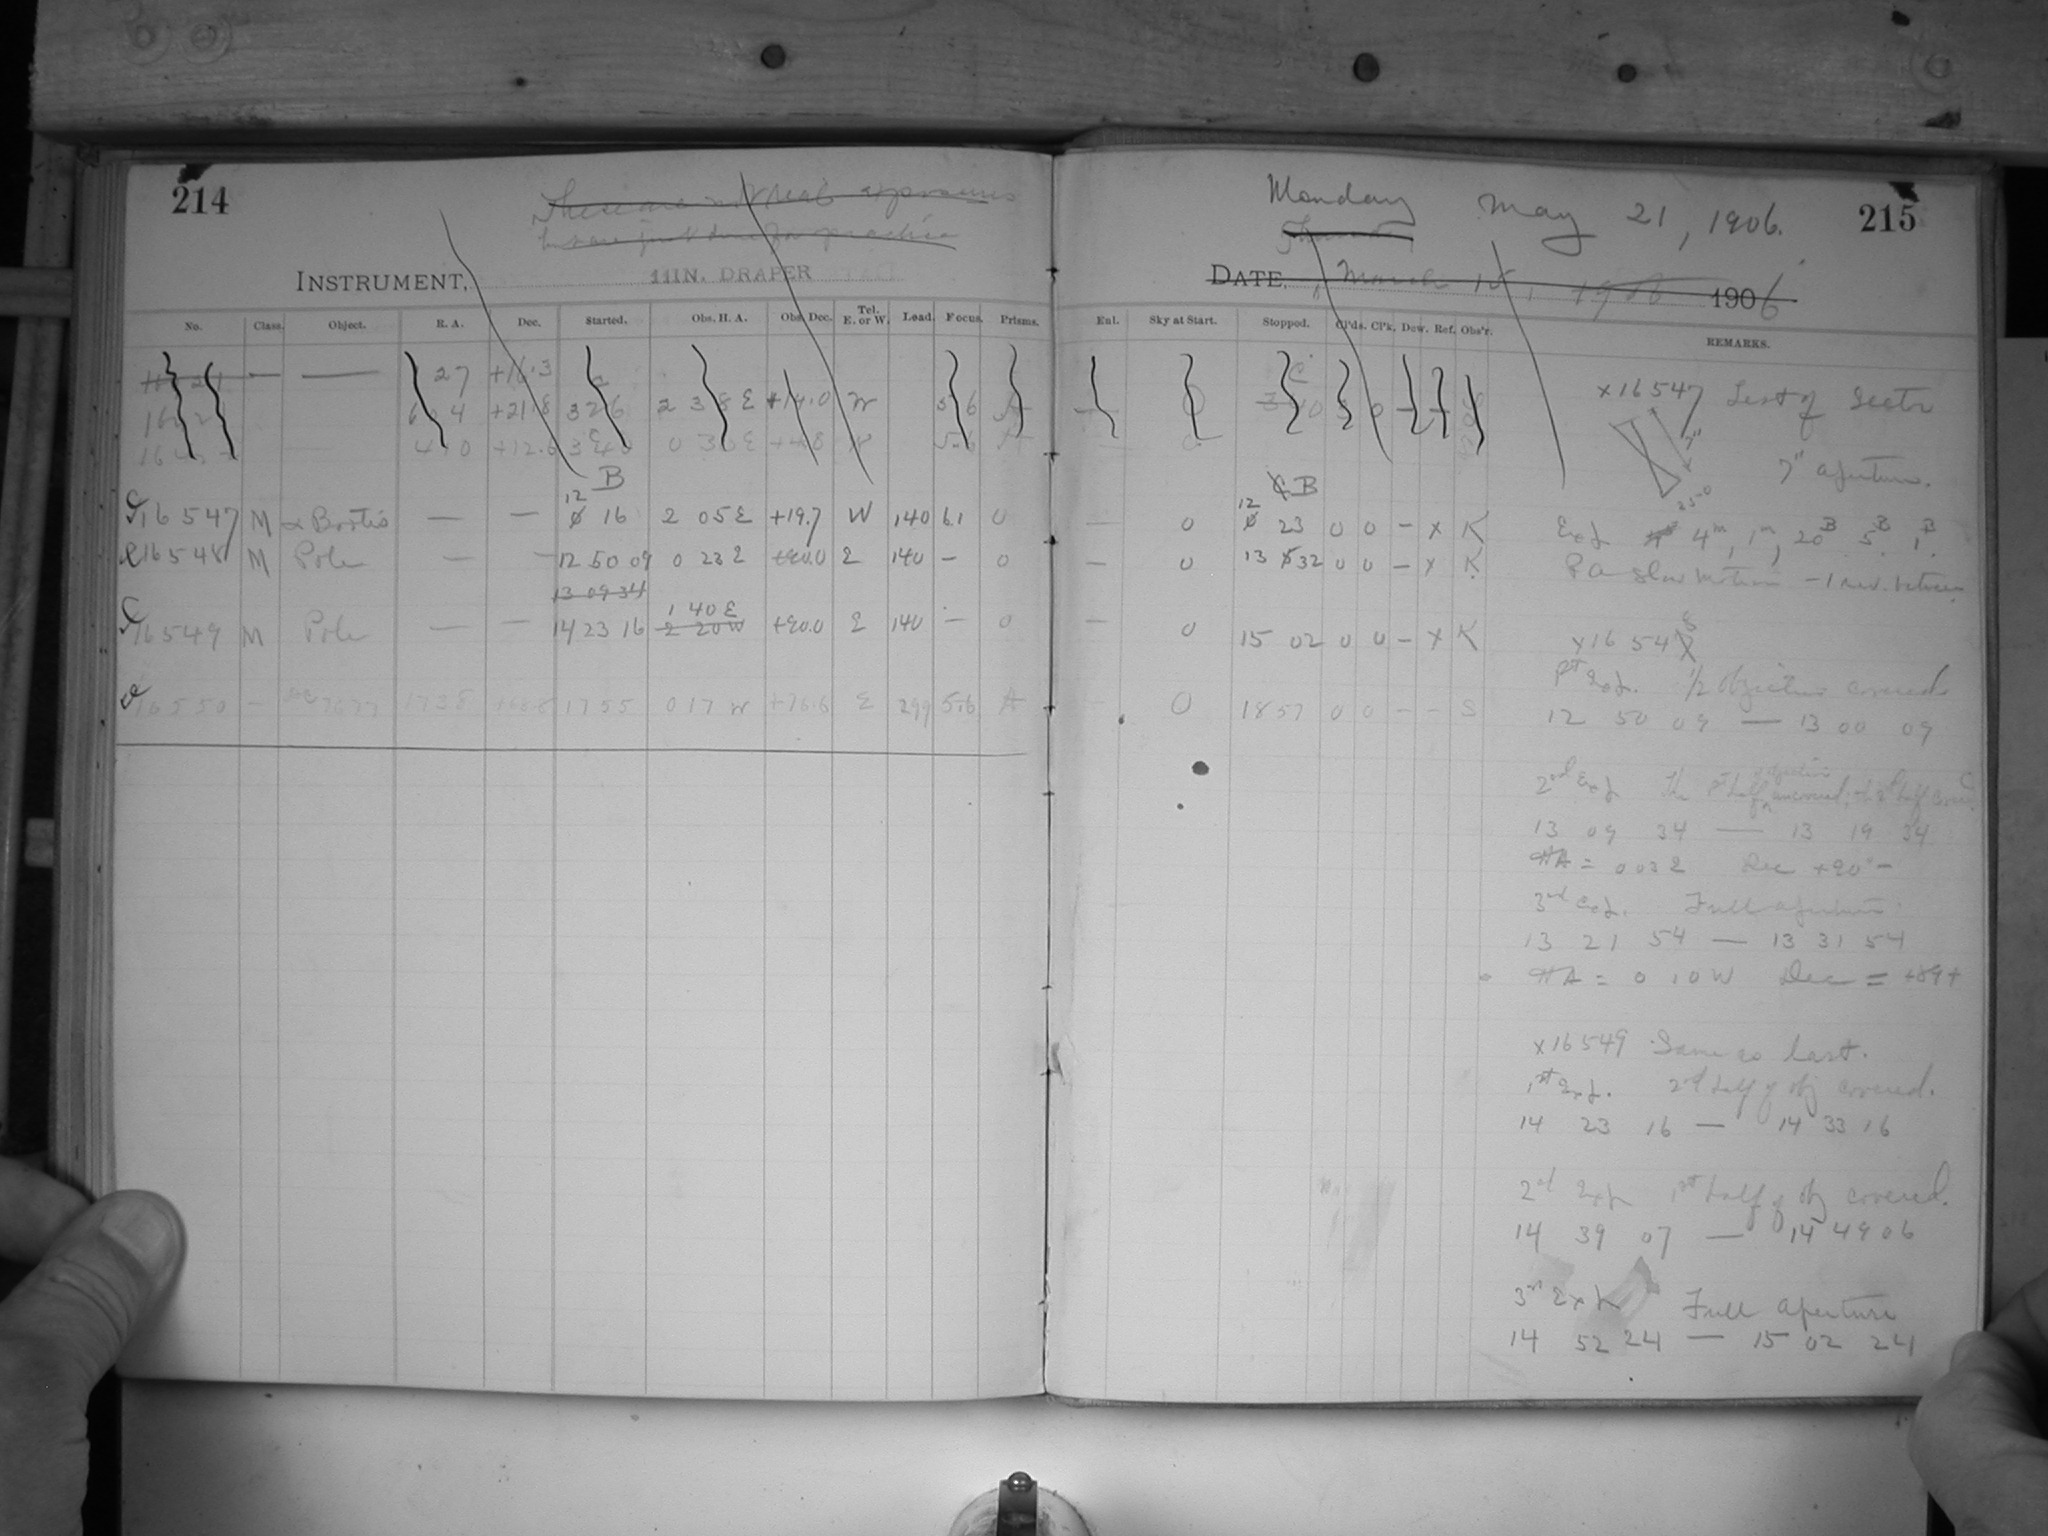 214
These are not real exposures
but are just done for practice
INSTRUMENT, 11IN. DRAPER
No. Class. Object. R. A. Dec. Started. Obs. H. A. Obs. Dec. Tel. E. or W. Load. Focus. Prisms.
— — 27 +16.3
+21.8 326 2 38 E +14.0 W 5.6 A
+12.6 0 30 E 5.6 A
B
16547 M α Bootis — — 12 0 16 2 05 E +19.7 W 140 6.1 0
16548 M Pole — — 12 50 09 0 23 E +90.0 E 140 — 0
13 09 34
1 40 E
16549 M Pole — — 14 23 16 2 20 W +90.0 E 140 — 0
16550 — 1738 1755 0 17 W +76.6 E 299 5.6 A
Monday May 21, 1906. 215
DATE, March 15, 1906 1906
Enl. Sky at Start. Stopped. Cl'ds. Cl'k. Dew. Ref. Obs'r. REMARKS.
x16547 Test of Sector
7"
7" aperture.
C B
— 0 12 0 23 0 0 — x K Exp. 4m, 1m, 20B 5B 1B.
— 0 13 32 0 0 — x K RA slow motion — 1 rev. between
— 0 15 02 0 0 — x K x16548
1st Exp. 1/2 objective covered
— 0 1857 0 0 — — S 12 50 09 — 13 00 09
2nd Exp The 1st half objective uncovered, + 2d half
13 09 34 — 13 19 34
HA = 0 03 E Dec +90° —
3rd Exp. Full aperture.
13 21 54 — 13 31 54
HA = 0 10 W Dec = +89+
x16549 Same as last.
1st Exp. 2d half of obj covered.
14 23 16 — 14 33 16
2nd Exp 1st half of obj covered.
14 39 07 — 14 49 06
3rd Exp Full aperture
14 52 24 — 15 02 24